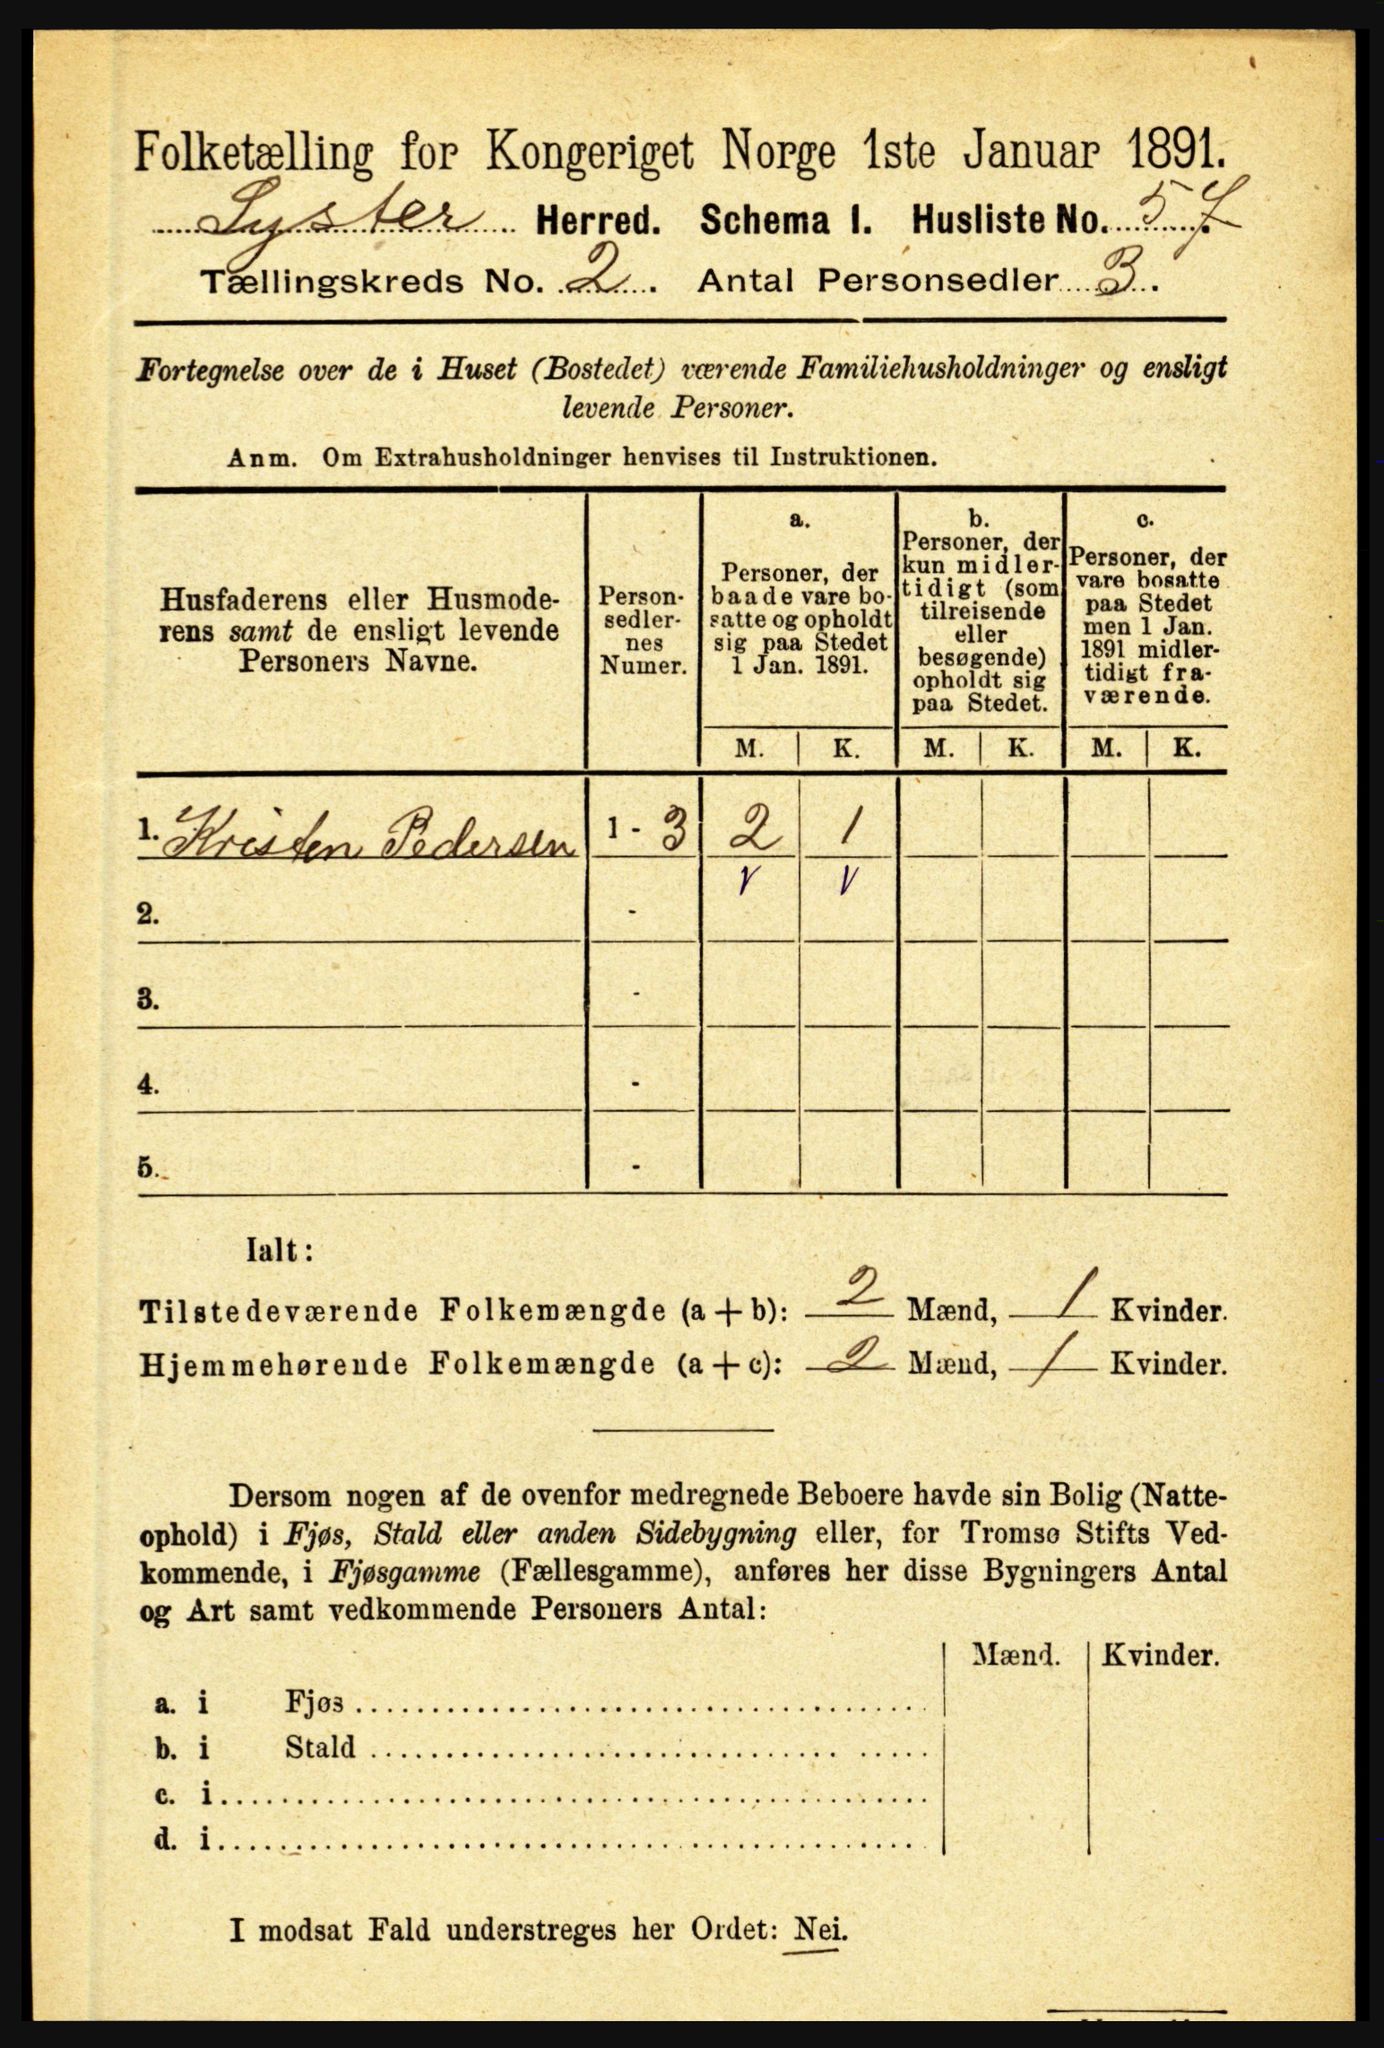 Folketælling for Kongeriget Norge 1ste Januar 1891.
Lyster Herred. Schema I. Husliste No. 57
Tællingskreds No. 2. Antal Personsedler 3.
Fortegnelse over de i Huset (Bostedet) værende Familiehusholdninger og ensligt
levende Personer.
Anm. Om Extrahusholdninger henvises til Instruktionen.
Husfaderens eller Husmode-
rens samt de ensligt levende
Personers Navne.
Person-
sedler-
nes
Numer.
a.
Personer, der
baade vare bo-
satte og opholdt
sig paa Stedet
1 Jan. 1891.
b.
Personer, der
kun midler-
tidigt (som
tilreisende
eller
besøgende)
opholdt sig
paa Stedet.
c.
Personer, der
vare bosatte
paa Stedet
men 1 Jan.
1891 midler-
tidigt fra-
værende.
M. K. M. K. M. K.
1. Kristen Pedersen 1 - 3 2 1
2. -
3. -
4. -
5. -
Ialt:
Tilstedeværende Folkemængde (a + b): 2 Mænd, 1 Kvinder.
Hjemmehørende Folkemængde (a + c): 2 Mænd, 1 Kvinder.
Dersom nogen af de ovenfor medregnede Beboere havde sin Bolig (Natte-
ophold) i Fjøs, Stald eller anden Sidebygning eller, for Tromsø Stifts Ved-
kommende, i Fjøsgamme (Fællesgamme), anføres her disse Bygningers Antal
og Art samt vedkommende Personers Antal:
Mænd. Kvinder.
a. i Fjøs
b. i Stald
c. i
d. i
I modsat Fald understreges her Ordet: Nei.